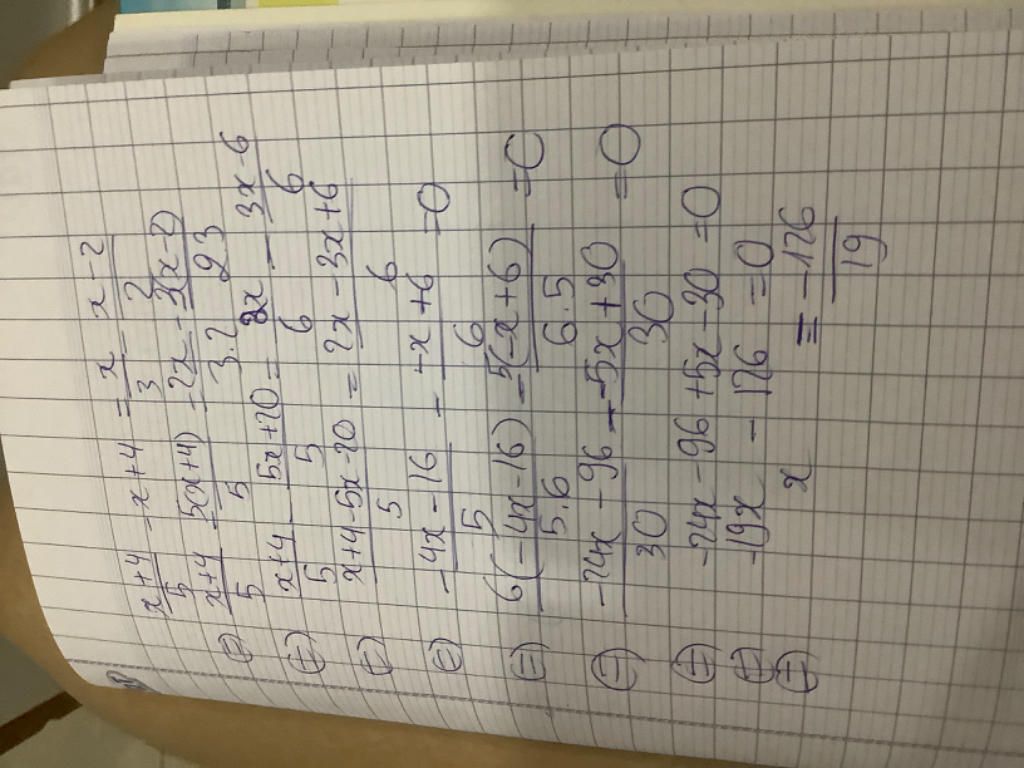 (x+4)/5 - x+4 = x/3 - (x-2)/2
⇔ (x+4)/5 - 5(x+4)/5 = 2x/3.2 - 3(x-2)/23
⇔ (x+4)/5 - (5x+20)/5 = 2x/6 - (3x-6)/6
⇔ (x+4-5x-20)/5 = (2x-3x+6)/6
⇔ (-4x-16)/5 - (-x+6)/6 = 0
⇔ 6(-4x-16)/5.6 - 5(-x+6)/6.5 = 0
⇔ (-24x-96)/30 - (-5x+30)/30 = 0
⇔ -24x-96+5x-30=0
⇔ -19x - 126 = 0
⇔ x = -126/19